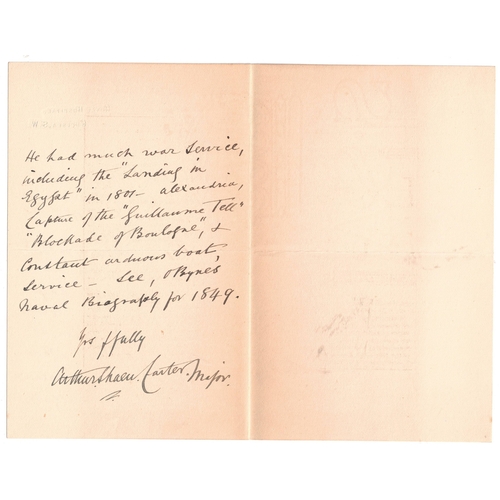 He had much war service,
including the "Landing in
Egypt" in 1801 - Alexandria,
Capture of the "Guillaume Tell"
"Blockade of Boulogne", &
Constant arduous boat
service - See, O'Byne's
Naval Biography for 1849.
Yrs ffully
Arthur Shaen Carter. Major.